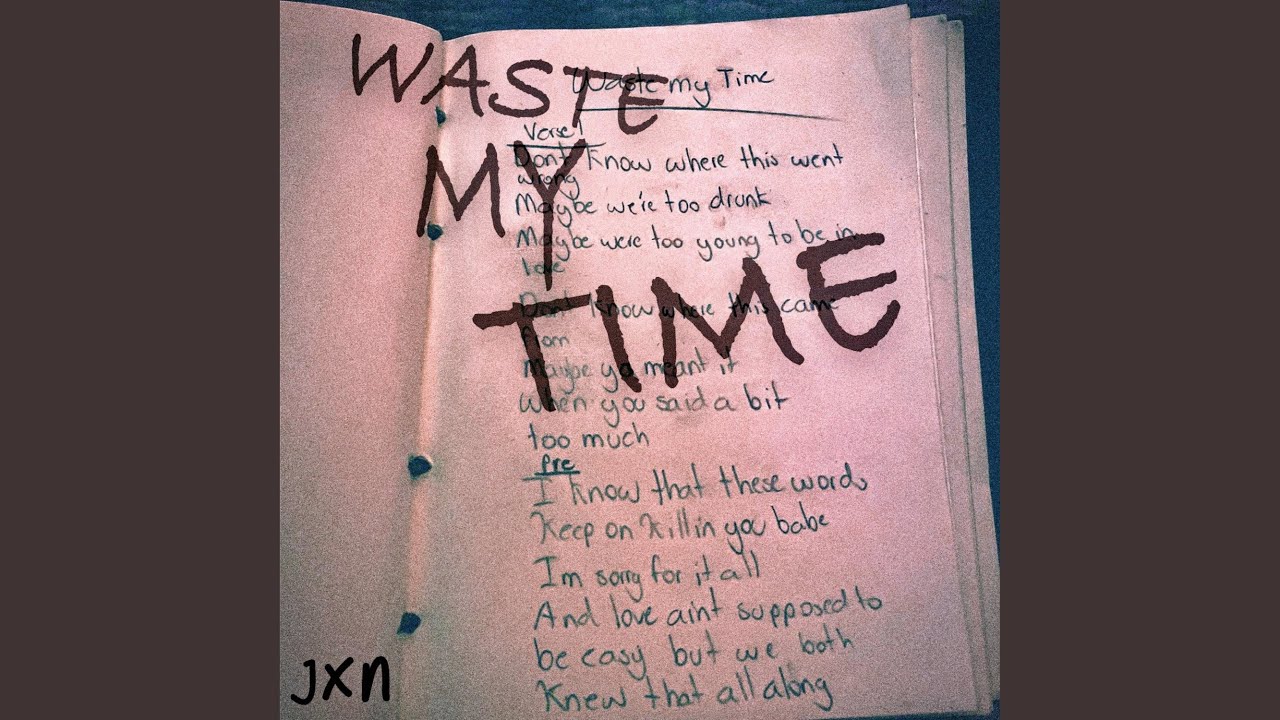 WASTE
MY
TIME
Waste my Time
Verse 1
Dont know where this went
wrong
Maybe we're too drunk
Maybe were too young to be in
love
Dont know where this came
from
Maybe ya meant it
When you said a bit
too much
Pre
I know that these words
Keep on Killin you babe
Im sorry for it all
And love aint supposed to
be easy but we both
Knew that all along
JXN